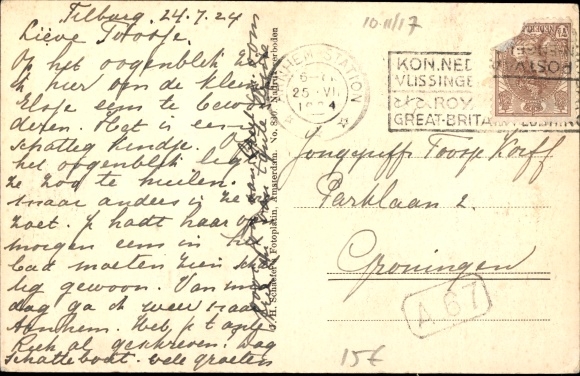 Tilburg. 24.7.24
Lieve Toosje.
Op het oogenblik ben
ik hier om de kleine
Elsje eens te bewon-
deren. Het is een
schattig kindje. Op
het oogenblik ligt
ze zoo te huilen.
maar anders is ze
zoet. J hadt haar van
morgen eens in het
bad moeten zien schat-
tig gewoon. Van mid
dag ga ik weer naar
Arnhem. Heb j t aan
Riek al geschreven. Dag
schattebout. vele groeten
J. H. Schaefer's Fotoplatin, Amsterdam. No. Nadruk verboden
10-11/17
ARNHEM-STATION
25 VII
1924
KON. NED
VLISSINGE
ROY
GREAT-BRITA
Jongejuff Toosje Korff
Parklaan 2.
Groningen
A 67
15€